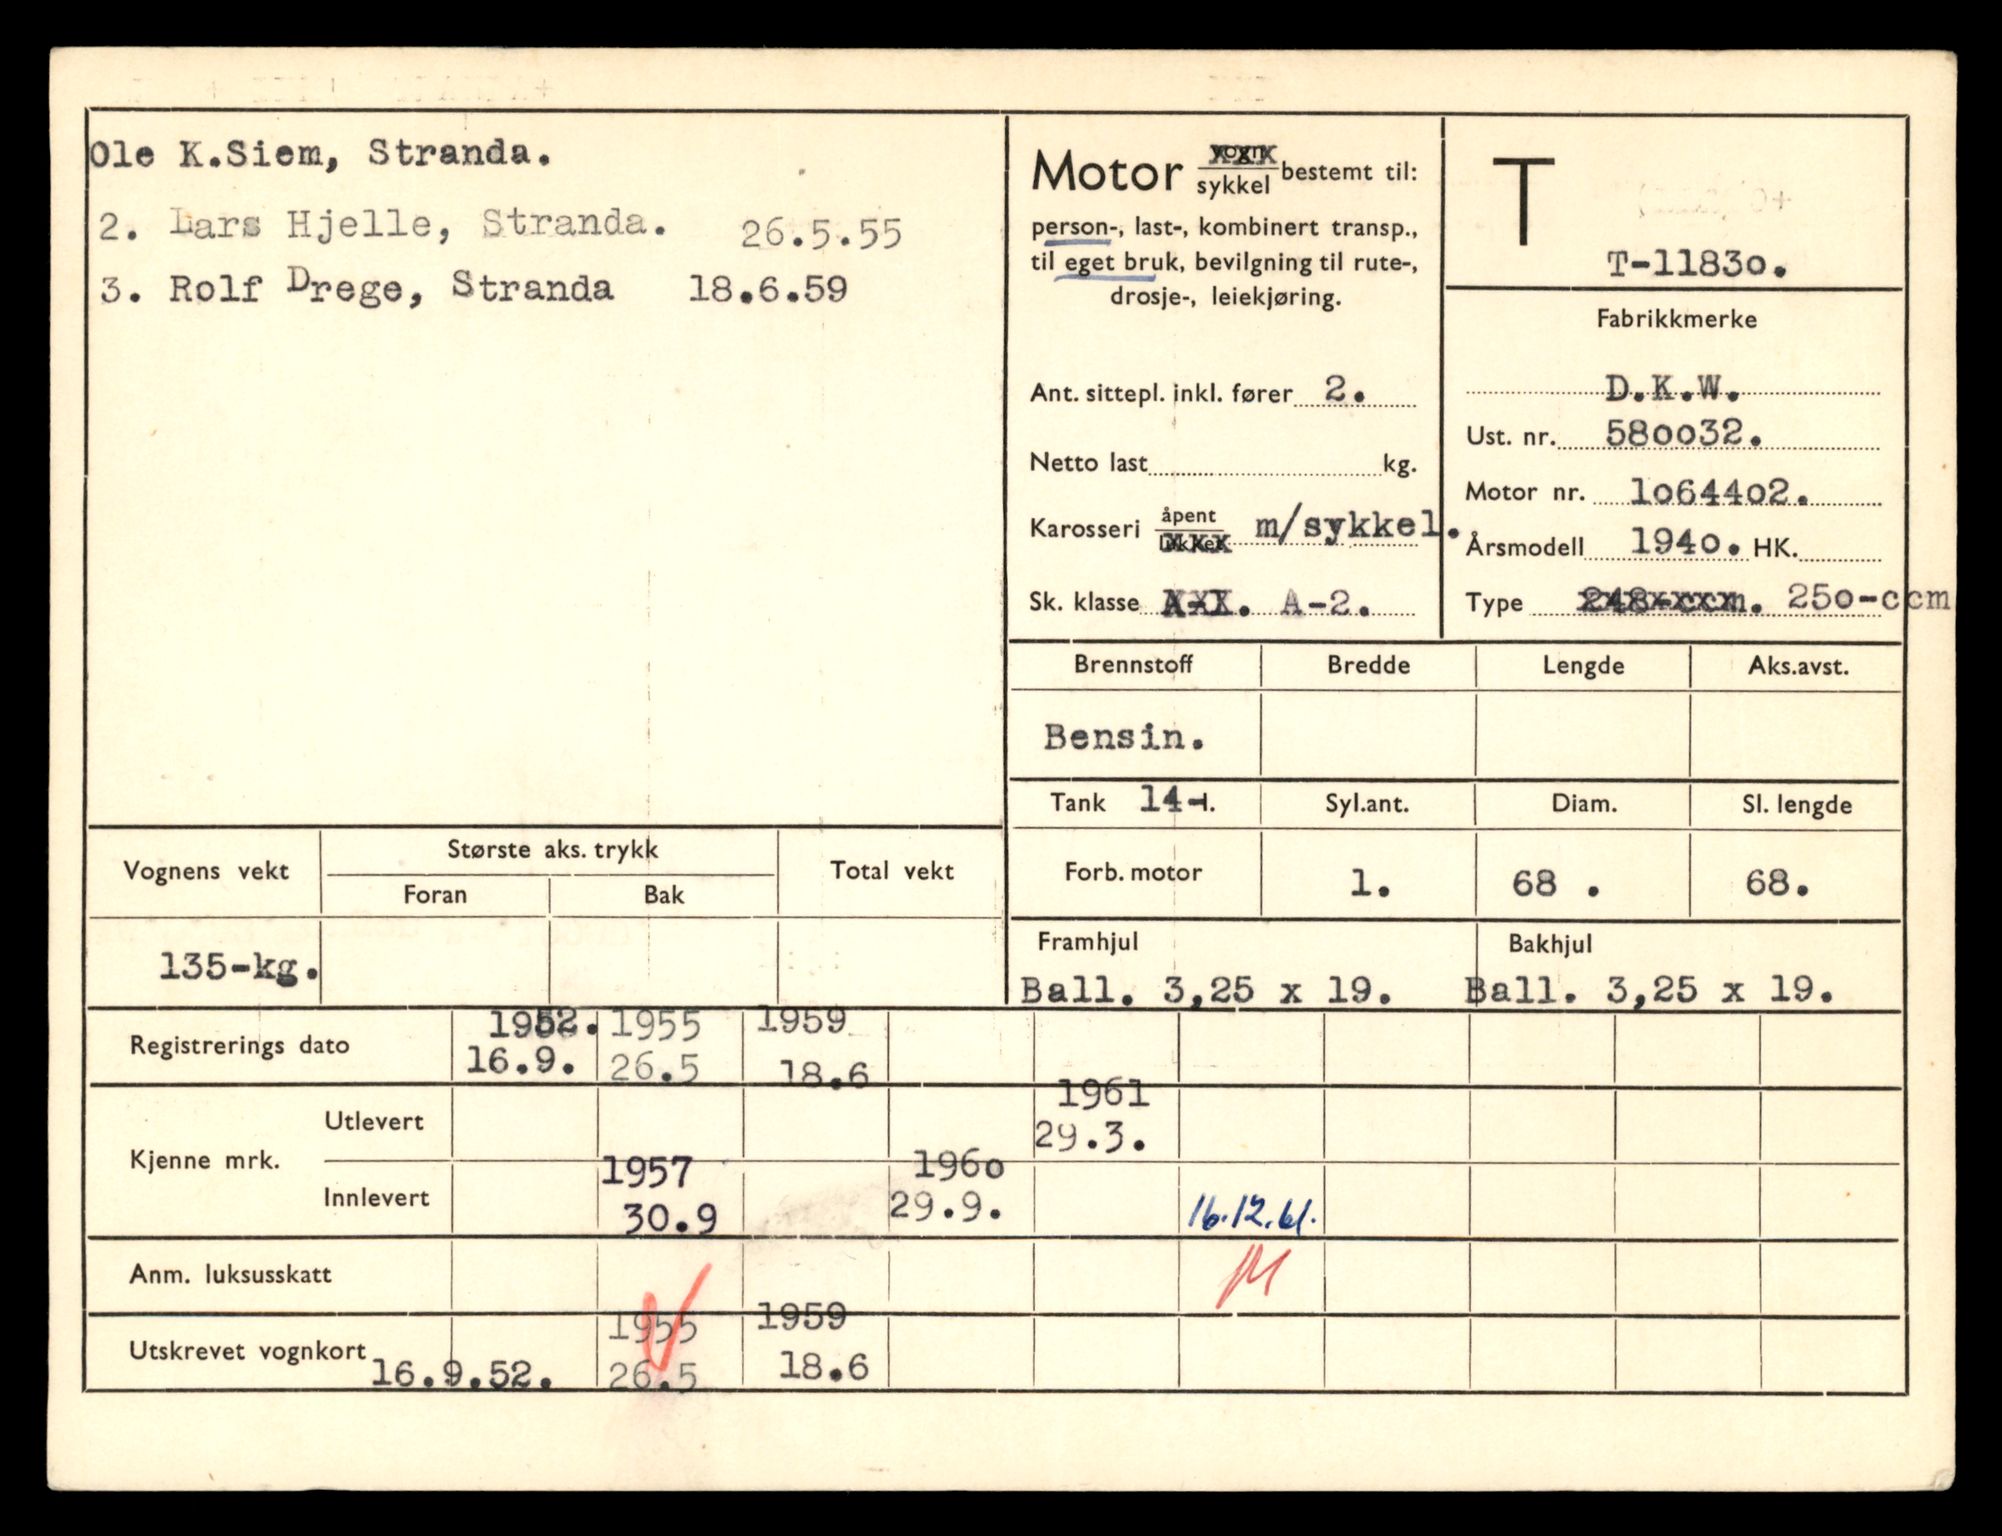 Ole K.Siem, Stranda.
2. Lars Hjelle, Stranda. 26.5.55
3. Rolf Drege, Stranda 18.6.59
Motor vogn sykkel bestemt til:
person-, last-, kombinert transp.,
til eget bruk, bevilgning til rute-,
drosje-, leiekjøring.
Ant. sittepl. inkl. fører 2.
Netto last kg.
Karosseri åpent lukket m/sykkel.
Sk. klasse A-1. A-2.
T
T-1183o.
Fabrikkmerke
D.K.W.
Ust. nr. 58oo32.
Motor nr. 1o644o2.
Årsmodell 194o. HK.
Type 248-ccm. 25o-ccm
Brennstoff Bredde Lengde Aks.avst.
Bensin.
Tank 14-l. Syl.ant. Diam. Sl. lengde
Forb. motor 1. 68 . 68.
Framhjul Bakhjul
Ball. 3,25 x 19. Ball. 3,25 x 19.
Vognens vekt Største aks. trykk Total vekt
Foran Bak
135-kg.
Registrerings dato 1952. 1955 1959
16.9. 26.5 18.6
Kjenne mrk.
Utlevert 1961
29.3.
Innlevert 1957 196o
30.9 29.9. 16.12.61.
Anm. luksusskatt
Utskrevet vognkort 1955 1959
16.9.52. 26.5 18.6